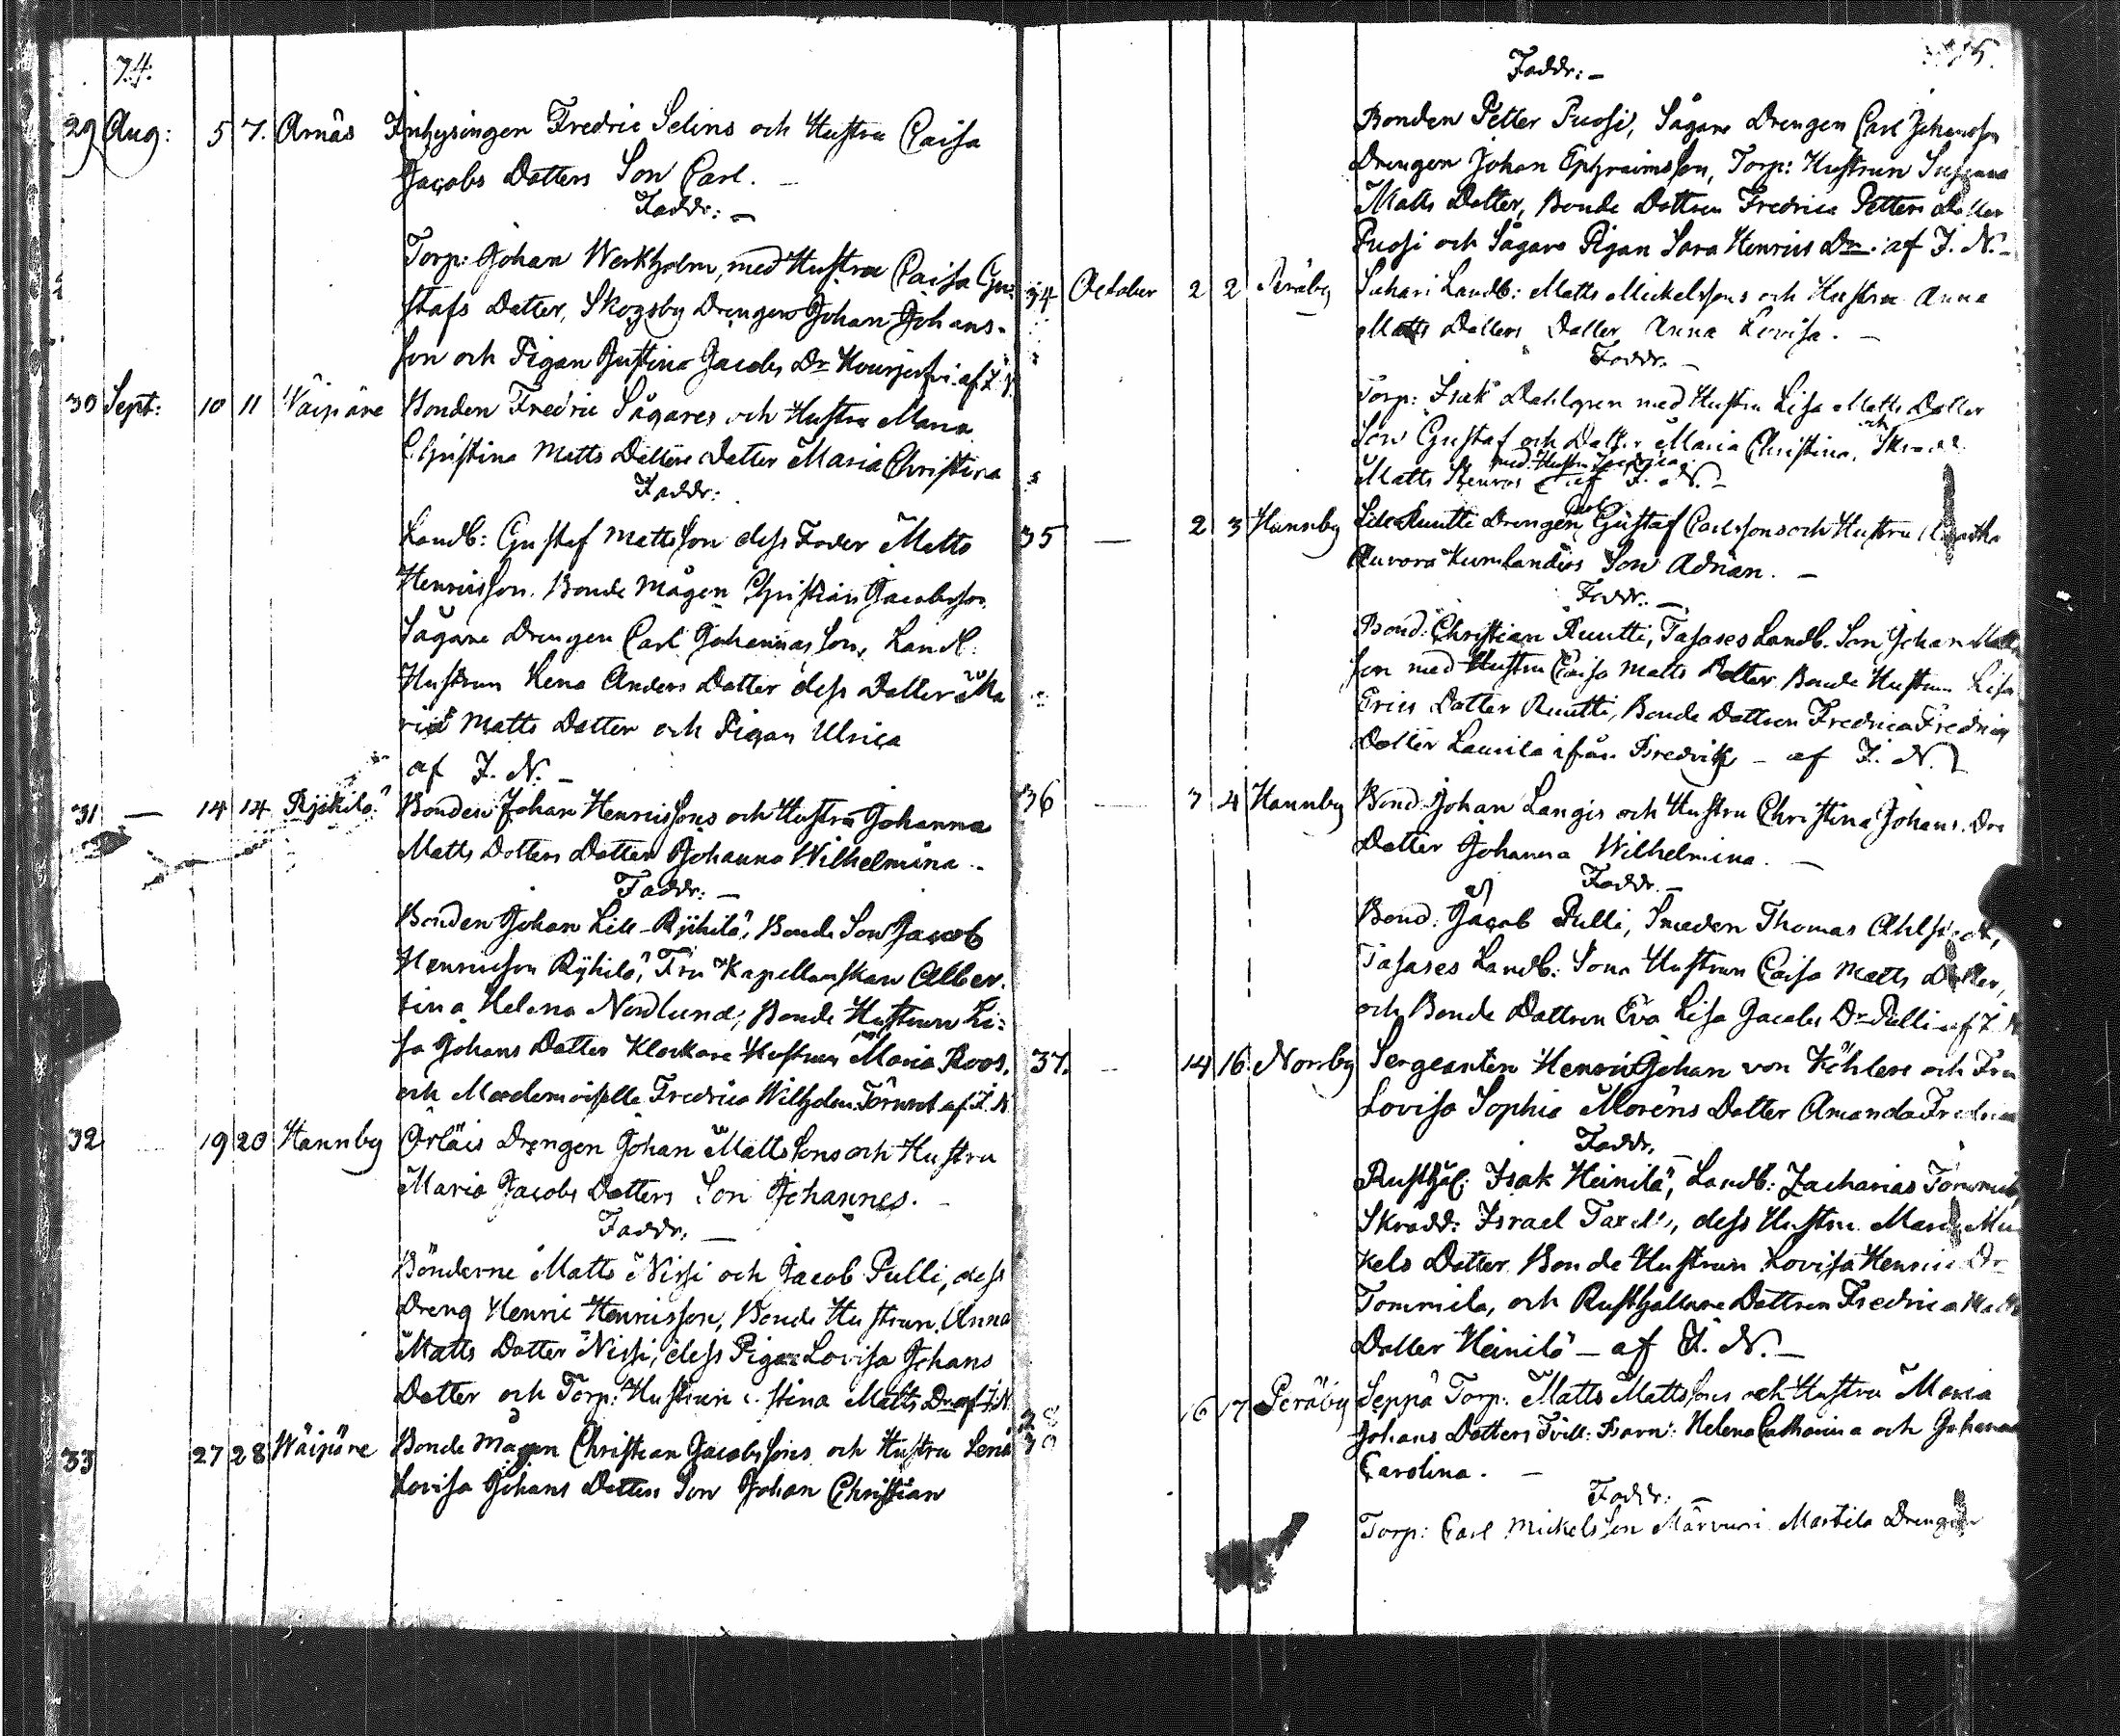 74.
29 Aug: 5 7. Arnäs Inhysingen Fredric Selins och Hustru Caisa
Jacobs Dotters Son Carl. –
Faddr: –
Torp: Johan Werkholm, med Hustru Caisa Gu-
stafs Dotter, Skogsby Drengen Johan Johans-
son och Pigan Justina Jacobs Dr af F. N.
30 Sept: 10 11 Wäipäre Bonden Fredric Sågares och Hustru Maria
Christina Matts Dotters Dotter Maria Christina
Faddr:
Landb: Gustaf Mattsson dess Fader Matts
Henricsson. Bonde Mågen Christian Jacobsson
Sågare Drengen Carl Johannasson, Landb:
Hustrun Lena Anders Dotter dess Dotter Ma
ria Matts Dotter och Pigan Ulrica
af F. N. –
31 — 14 14 Ryhilä Bonden Johan Henricssons och Hustru Johanna
Matts Dotters Dotter Johanna Wilhelmina –
Faddr: –
Bonden Johan Lill-Ryhilä, Bonde Son Jacob
Henricsson Ryhilä, Fru Kapellanskan Alber-
tina Helena Nordlund, Bonde Hustrun Li-
sa Johans Dotter Klockare Hustrun Maria Roos,
och Mademoiselle Fredrica Wilhelm. Törnrot af F. N
32 19 20 Hannby Drengen Johan Mattssons och Hustru
Maria Jacobs Dotters Son Johannes. –
Faddr. –
Bönderne Matts Nissi och Jacob Pulli, dess
Dreng Henric Henricsson, Bonde Hustrun Anna
Matts Dotter Nissi, dess Piga Lovisa Johans
Dotter och Torp: Hustrun Stina Matts Dr af F. N
33 27 28 Wäipäre Bonde Mågen Christian Jacobssons och Hustru Lena
Lovisa Johans Dotters Son Johan Christian
Faddr: –
Bonden Petter Puosi, Sågare Drengen Carl Johansson
Drengen Johan Ephraimsson, Torp: Hustrun Susanna
Matts Dotter, Bonde Dottren Fredrica Petters Dotter
Puosi och Sågare Pigan Sara Henrics Dr: af F. N. –
34 October 2 2 Peräby Suhari Landb: Matts Mickelssons och Hustru Anna
Matts Dotters Dotter Anna Lovisa. –
Faddr. –
Torp: Isak Dahlgren med Hustru Lisa Matts Dotter
Son Gustaf och Dotter Maria Christina, och
Matts med Hustru af F. N. –
35 — 2 3 Hannby Lill Ruutti Drengen Gustaf Carlssons och Hustru
Aurora Kumlanders Son Adrian. –
Faddr. –
Bond: Christian Ruutti, Tasases Landb. Son Johan Matts
son med Hustru Caisa Matts Dotter Bonde Hustrun Lisa
Erics Dotter Ruutti, Bonde Dottren Fredrica Fredrics
Dotter Laurila ifrån – af F. N.
36 — 3 4 Hannby Bond: Johan Langis och Hustru Christina Johans Drs
Dotter Johanna Wilhelmina. –
Faddr. –
Bond: Jacob Pulli, Smeden Thomas
Tasases Landb: Sona Hustrun Caisa Matts Dotter,
och Bonde Dottren Eva Lisa Jacobs Dr Pulli af F. N
37. 14 16 Norrby Sergeanten Henric Johan von Köhlers och Fru
Lovisa Sophia Moréns Dotter Amanda Fredrica
Faddr. –
Rusthål: Isak Heinilä, Landb: Zacharias Tommila
Skrädd: Israel dess Hustru Maria Mi
kels Dotter Bonde Hustrun Lovisa Henrics Dr
Tommila, och Rusthållare Dottren Fredrica Matts
Dotter Heinilä – af F. N. –
38 39 16 17 Peräby Seppä Torp: Matts Mattssons och Hustru Maria
Johans Dotters Tvill: Barn: Helena Catharina och Johanna
Carolina. –
Faddr: –
Torp: Carl Mickelsson Martila Drengen